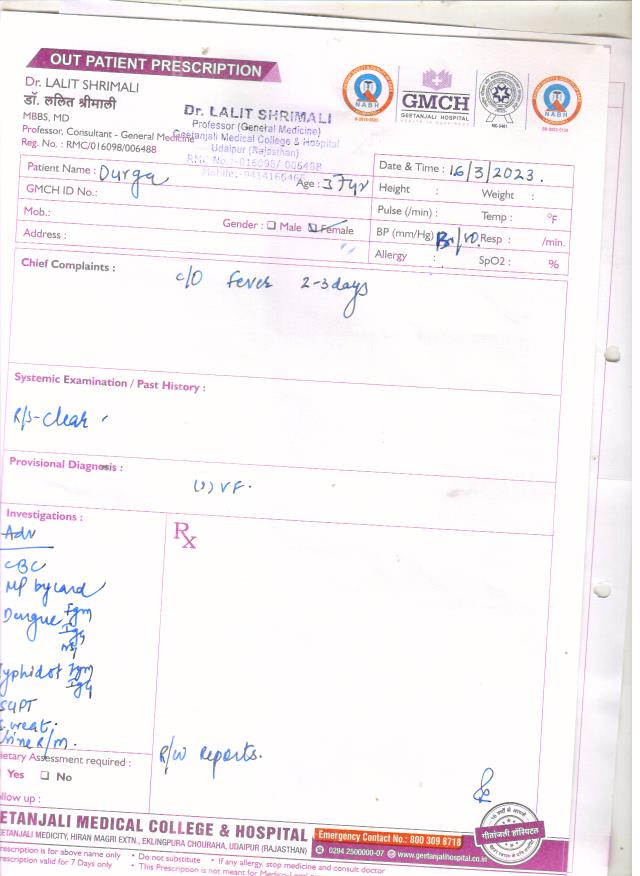 OUT PATIENT PRESCRIPTION
Dr. LALIT SHRIMALI
डॉ. ललित श्रीमाली
MBBS, MD
Professor, Consultant - General Medicine
Reg. No. : RMC/016098/006488
Dr. LALIT SHRIMALI
Professor (General Medicine)
Geetanjali Medical College & Hospital
Udaipur (Rajasthan)
RMC No.:-016098/ 006488
Mobile:-9414166466
NABH
GMCH
GEETANJALI HOSPITAL
NABH
Patient Name : Durga
Age :
Date & Time : 16/3/2023.
GMCH ID No.:
Height : Weight :
Mob.:
Gender : Male Female
Pulse (/min) : Temp : °F
Address :
BP (mm/Hg) Resp : /min.
Allergy : SpO2 : %
Chief Complaints :
c/o Fever 2-3days
Systemic Examination / Past History :
R/S-Clear
Provisional Diagnosis :
(?) VF.
Investigations :
Rx
Adv
CBC
MP by card
Dengue Igm
IgG
NS1
yphidot Igm
IgG
SGPT
S. creat.
Urine R/m.
R/W Reports.
ietary Assessment required :
Yes No
llow up :
EETANJALI MEDICAL COLLEGE & HOSPITAL
Emergency Contact No.: 800 309 8718
EETANJALI MEDICITY, HIRAN MAGRI EXTN., EKLINGPURA CHOURAHA, UDAIPUR (RAJASTHAN)
0294 2500000-07 www.geetanjalihospital.co.in
गीतांजली हॉस्पिटल
rescription is for above name only • Do not substitute • If any allergy, stop medicine and consult doctor
rescription valid for 7 Days only • This Prescription is not meant for Medico-Legal